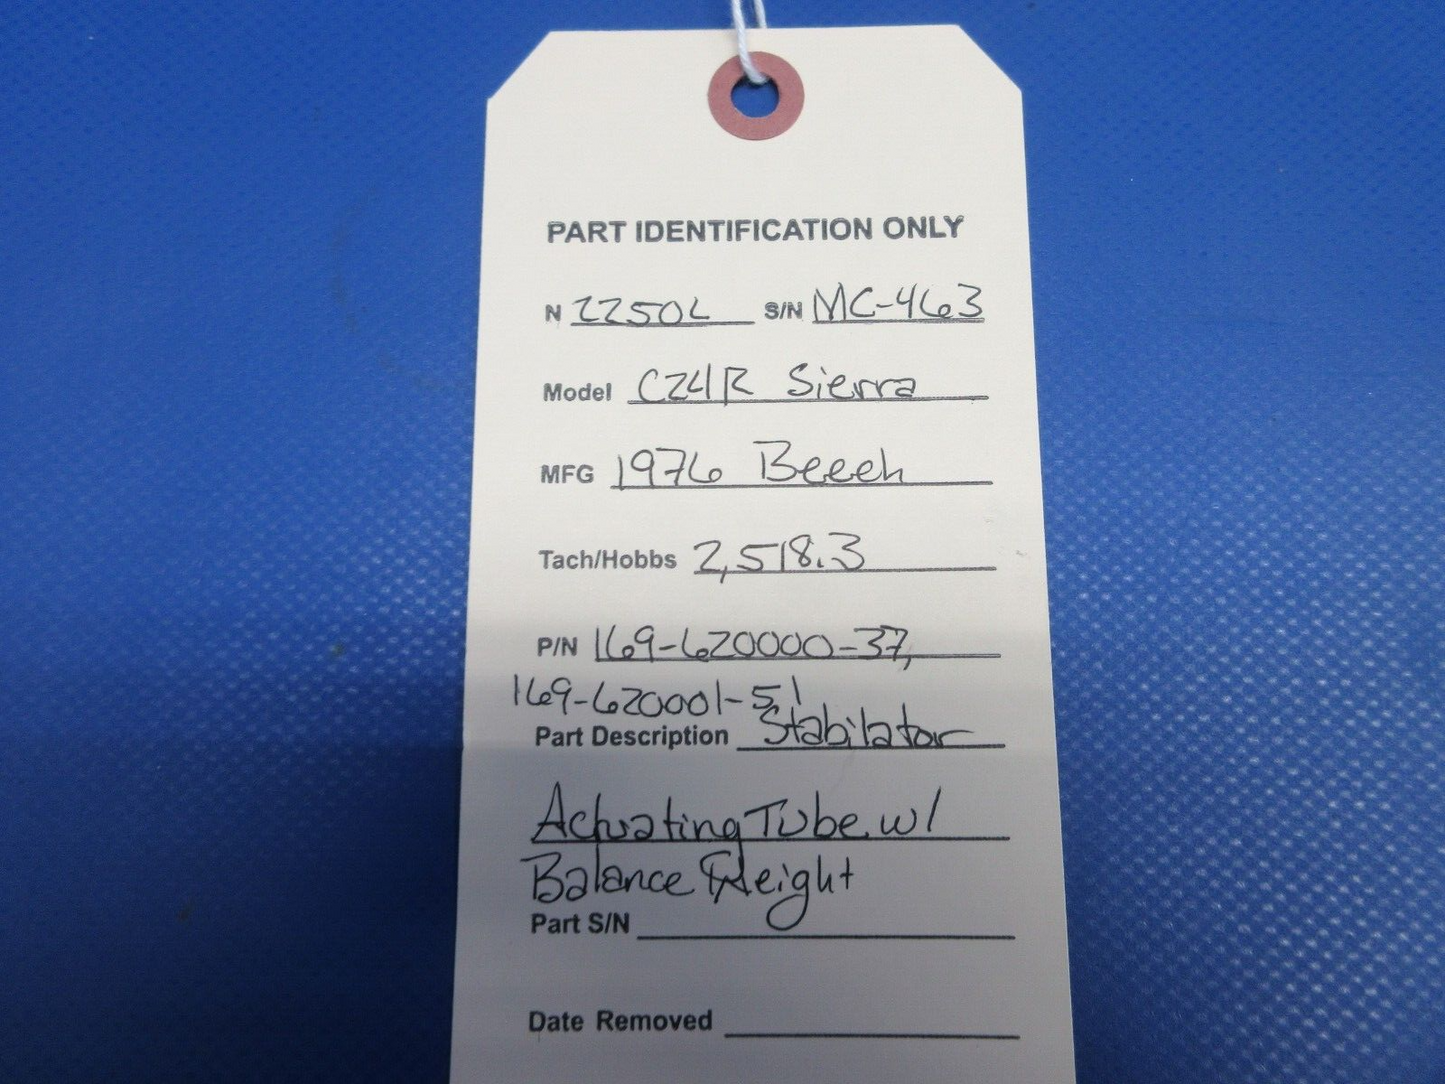 PART IDENTIFICATION ONLY
N 2250L S/N MC-463
Model C24R Sierra
MFG 1976 Beech
Tach/Hobbs 2,518.3
P/N 169-620000-37,
169-620001-51
Part Description Stabilator
Actuating Tube w/
Balance Weight
Part S/N
Date Removed